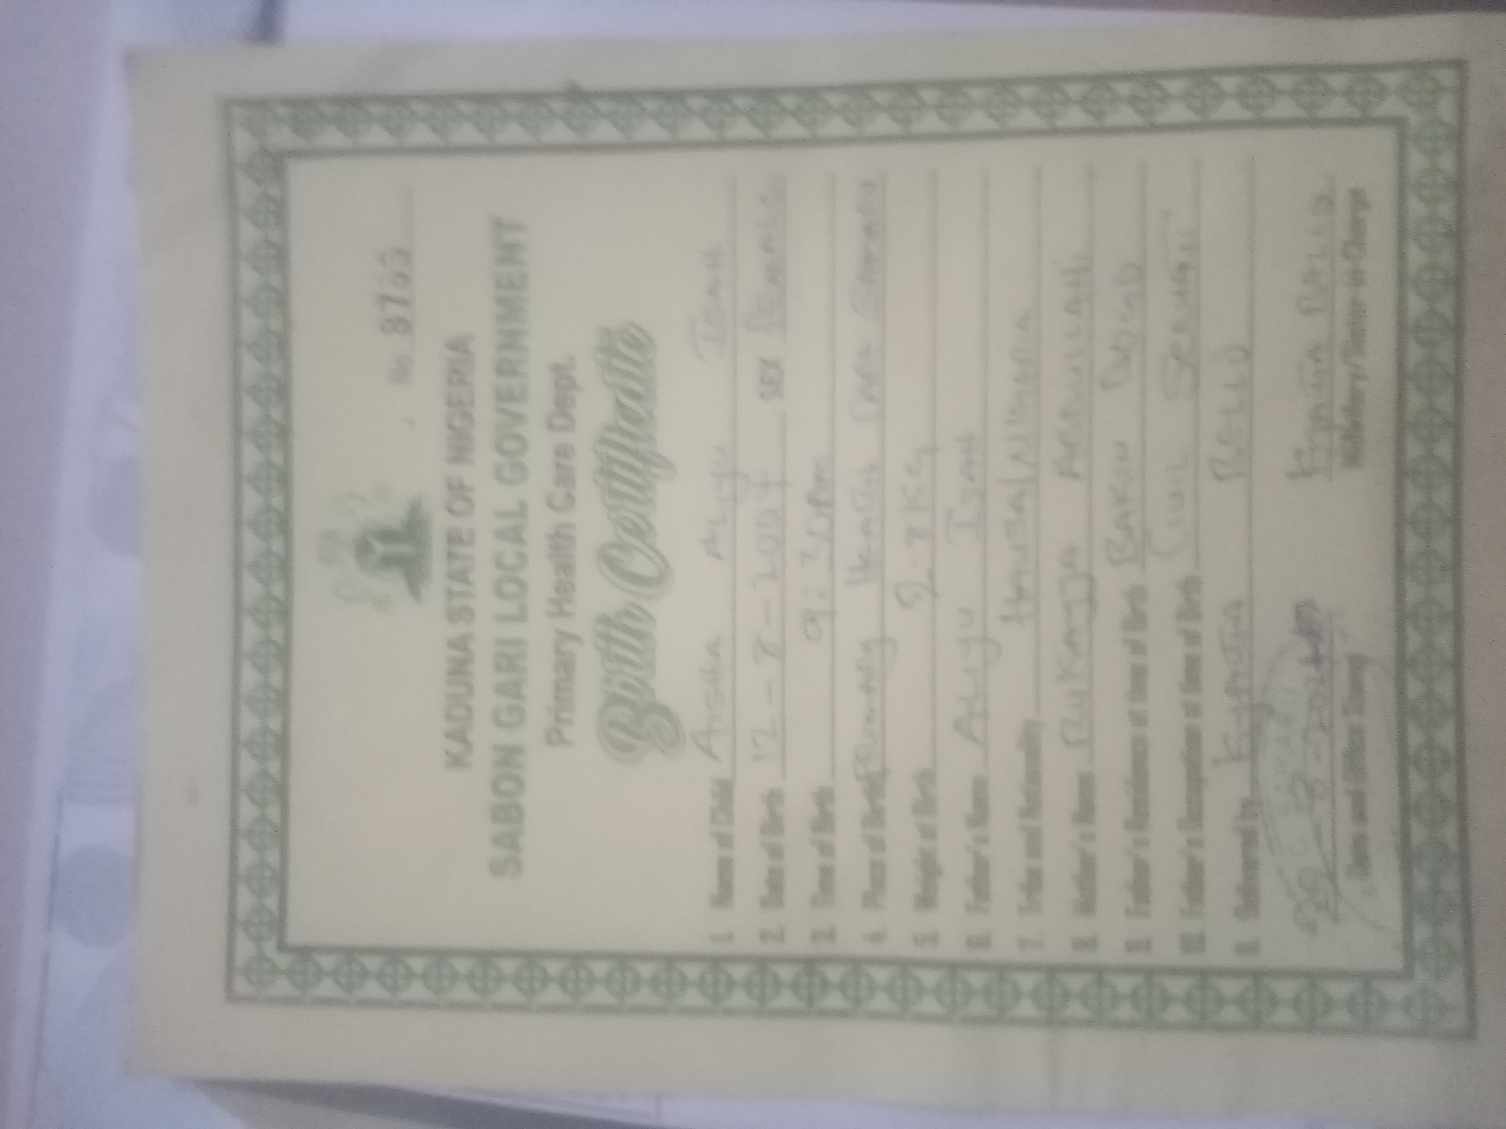 No 8763
KADUNA STATE OF NIGERIA
SABON GARI LOCAL GOVERNMENT
Primary Health Care Dept.
Birth Certificate
1. Name of Child Aisha Aliyu Isah
2. Date of Birth 12-7-2004 SEX Female
3. Time of Birth 9:30
4. Place of Birth
5. Weight at Birth 2.7KG
6. Father's Name Aliyu Isah
7. Tribe and Nationality Hausa/Nigeria
8. Mother's Name Rukayya Abdullahi
9. Father's Residence at time of Birth
10. Father's Occupation at time of Birth Civil Servant
11. Delivered by Bello
Bello
Date and Office Stamp Midwifery/Senior-in-Charge